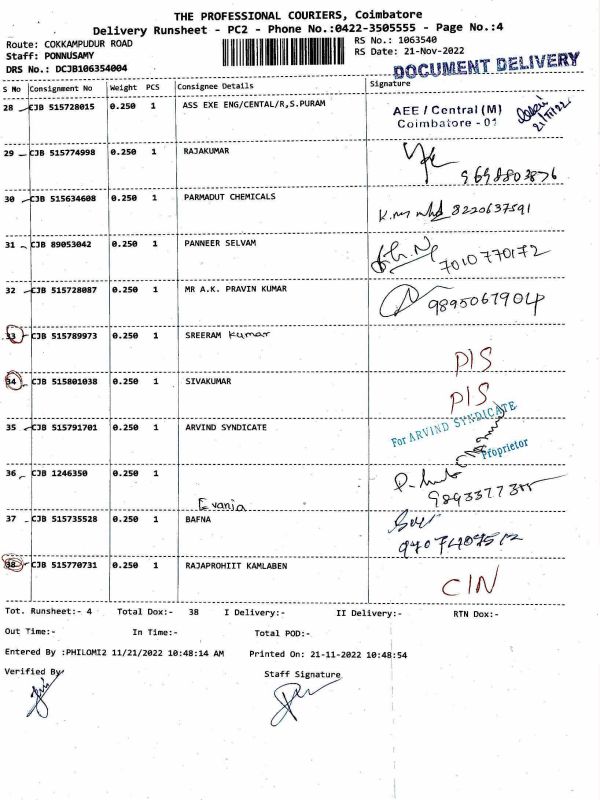 THE PROFESSIONAL COURIERS, Coimbatore
Delivery Runsheet - PC2 - Phone No.:0422-3505555 - Page No.:4
Route: COKKAMPUDUR ROAD RS No.: 1063540
Staff: PONNUSAMY RS Date: 21-Nov-2022
DRS No.: DCJB106354004 DOCUMENT DELIVERY
S No Consignment No Weight PCS Consignee Details Signature
28 CJB 515728015 0.250 1 ASS EXE ENG/CENTAL/R,S.PURAM AEE / Central (M)
Coimbatore - 01 21/11/22
29 CJB 515774998 0.250 1 RAJAKUMAR
9698803876
30 CJB 515634608 0.250 1 PARMADUT CHEMICALS
8220637591
31 CJB 89053042 0.250 1 PANNEER SELVAM
7010770172
32 CJB 515728087 0.250 1 MR A.K. PRAVIN KUMAR
9895067904
33 CJB 515789973 0.250 1 SREERAM Kumar
PIS
34 CJB 515801038 0.250 1 SIVAKUMAR
PIS
35 CJB 515791701 0.250 1 ARVIND SYNDICATE For ARVIND SYNDICATE
Proprietor
36 CJB 1246350 0.250 1
Evania
37 CJB 515735528 0.250 1 BAFNA
38 CJB 515770731 0.250 1 RAJAPROHIIT KAMLABEN
CIN
Tot. Runsheet:- 4 Total Dox:- 38 I Delivery:- II Delivery:- RTN Dox:-
Out Time:- In Time:- Total POD:-
Entered By :PHILOMI2 11/21/2022 10:48:14 AM Printed On: 21-11-2022 10:48:54
Verified By Staff Signature